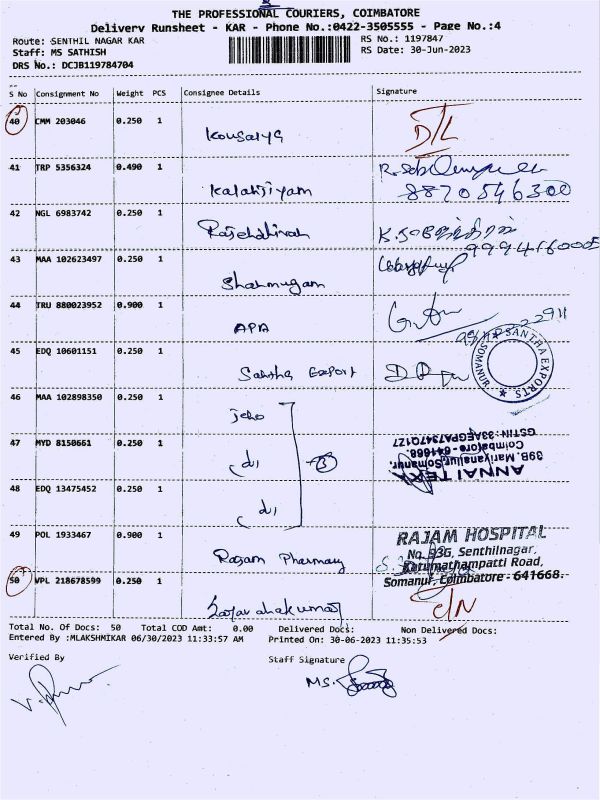 THE PROFESSIONAL COURIERS, COIMBATORE
Delivery Runsheet - KAR - Phone No.:0422-3505555 - Page No.:4
Route: SENTHIL NAGAR KAR
RS No.: 1197847
Staff: MS SATHISH
RS Date: 30-Jun-2023
DRS No.: DCJB119784704
S No Consignment No Weight PCS Consignee Details Signature
40 CMM 203046 0.250 1
Kousalya D/L
41 TRP 5356324 0.490 1
8870546300
42 NGL 6983742 0.250 1
9994416005
43 MAA 102623497 0.250 1
Shanmugam
44 TRU 880023952 0.900 1
APA
45 EDQ 10601151 0.250 1
Export
SANTHA EXPORTS
SOMANUR
46 MAA 102898350 0.250 1
47 MYD 8150661 0.250 1
ANNAI TEX
39B. Mariyanallur, Somanur.
Coimbatore - 641668.
GSTIN:33AEGPA7347Q1Z7
48 EDQ 13475452 0.250 1
49 POL 1933467 0.900 1
Rajam Pharmacy
RAJAM HOSPITAL
No. 93G, Senthilnagar,
Karumathampatti Road,
Somanur, Coimbatore - 641668.
50 VPL 218678599 0.250 1
C/N
Total No. Of Docs: 50 Total COD Amt: 0.00 Delivered Docs: Non Delivered Docs:
Entered By :MLAKSHMIKAR 06/30/2023 11:33:57 AM Printed On: 30-06-2023 11:35:53
Verified By Staff Signature
MS.